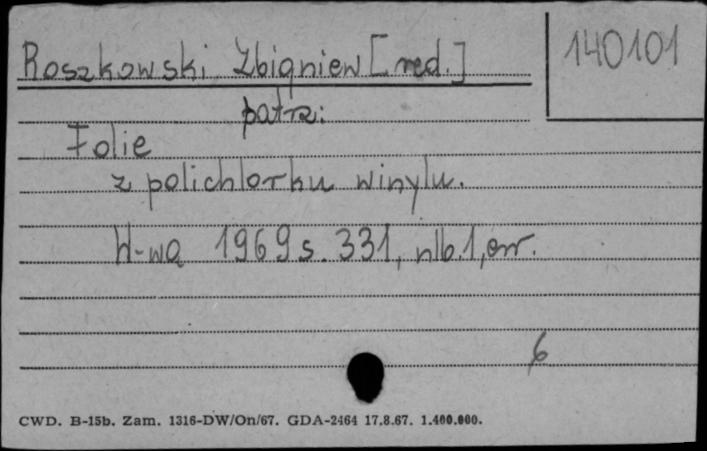 Roszkowski Zbigniew [red.]
140101
patrz:
Folie
z polichlorku winylu.
W-wa 1969 s. 331, nlb. 1, err.
6
CWD. B-15b. Zam. 1316-DW/On/67. GDA-2464 17.8.67. 1.400.000.